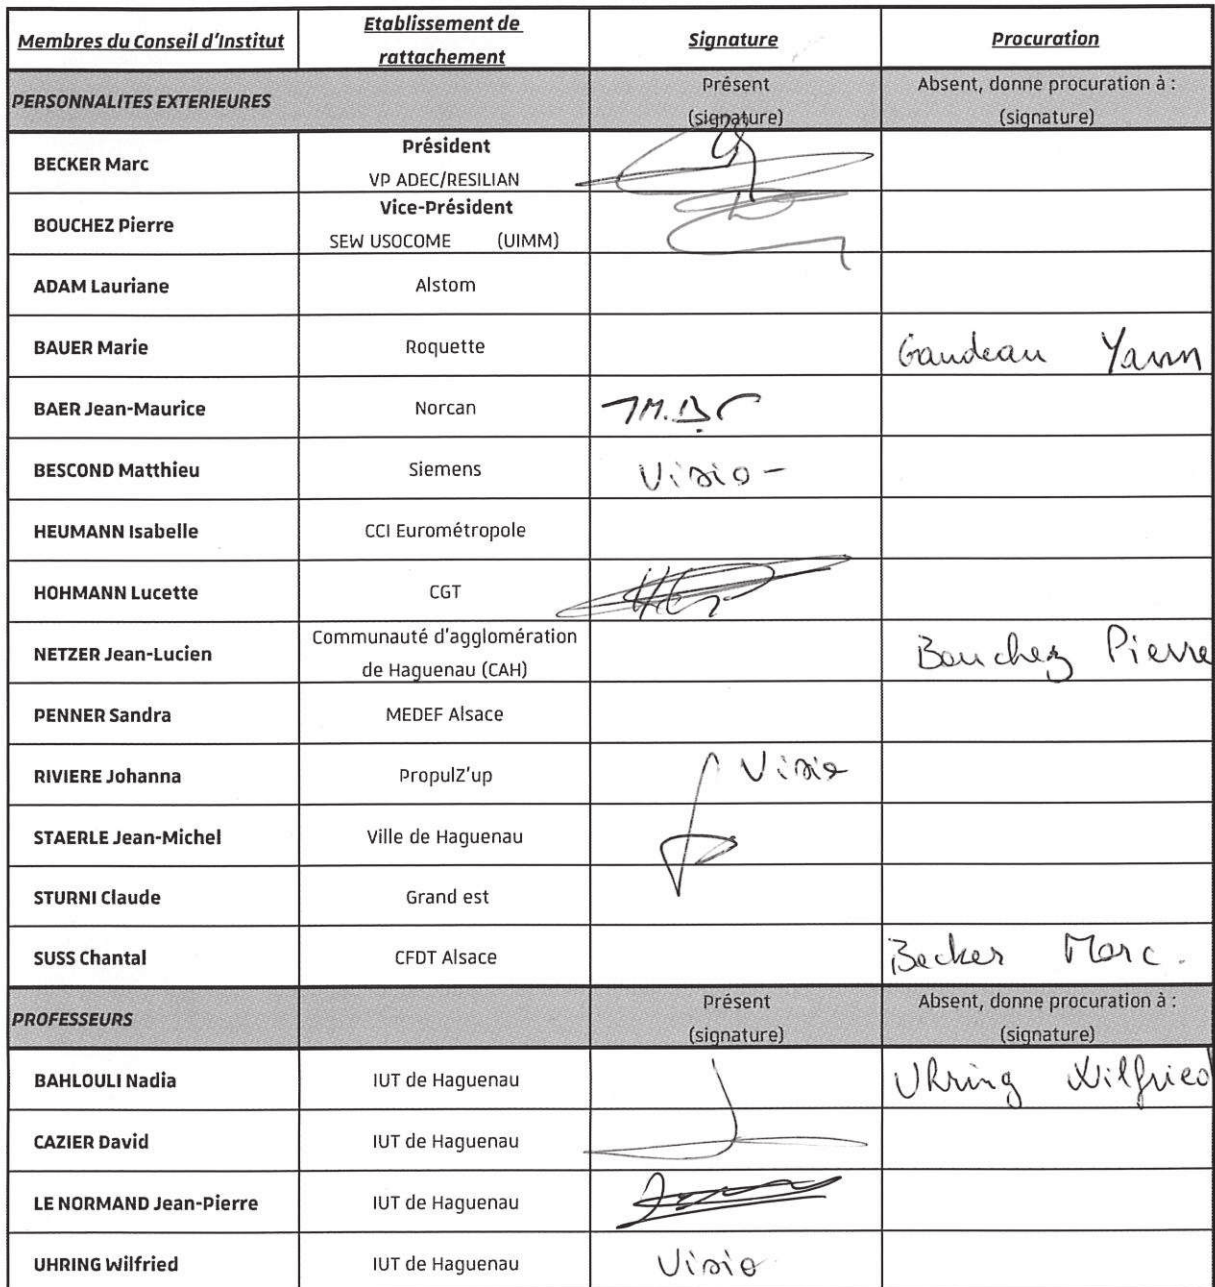 Membres du Conseil d'Institut
Etablissement de
rattachement
Signature
Procuration
PERSONNALITES EXTERIEURES
Présent
(signature)
Absent, donne procuration à :
(signature)
BECKER Marc
Président
VP ADEC/RESILIAN
BOUCHEZ Pierre
Vice-Président
SEW USOCOME (UIMM)
ADAM Lauriane
Alstom
BAUER Marie
Roquette
Gaudeau Yann
BAER Jean-Maurice
Norcan
BESCOND Matthieu
Siemens
Visio -
HEUMANN Isabelle
CCI Eurométropole
HOHMANN Lucette
CGT
NETZER Jean-Lucien
Communauté d'agglomération
de Haguenau (CAH)
Bouchez Pierre
PENNER Sandra
MEDEF Alsace
RIVIERE Johanna
PropulZ'up
Visio
STAERLE Jean-Michel
Ville de Haguenau
STURNI Claude
Grand est
SUSS Chantal
CFDT Alsace
Becker Marc.
PROFESSEURS
Présent
(signature)
Absent, donne procuration à :
(signature)
BAHLOULI Nadia
IUT de Haguenau
Uhring Wilfried
CAZIER David
IUT de Haguenau
LE NORMAND Jean-Pierre
IUT de Haguenau
UHRING Wilfried
IUT de Haguenau
Visio